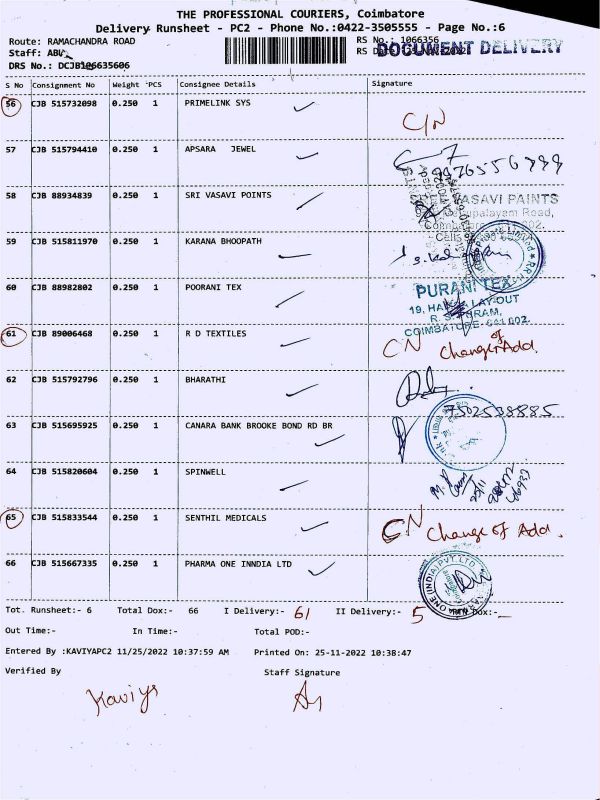 THE PROFESSIONAL COURIERS, Coimbatore
Delivery Runsheet - PC2 - Phone No.:0422-3505555 - Page No.:6
Route: RAMACHANDRA ROAD
RS No.: 1066356
Staff:
RS
DOCUMENT DELIVERY
DRS No.: DCJB106635606
S No Consignment No Weight PCS Consignee Details Signature
56 CJB 515732098 0.250 1 PRIMELINK SYS
C/N
57 CJB 515794410 0.250 1 APSARA JEWEL
58 CJB 88934839 0.250 1 SRI VASAVI POINTS
VASAVI PAINTS
Road,
59 CJB 515811970 0.250 1 KARANA BHOOPATH
60 CJB 88982802 0.250 1 POORANI TEX
PURANI TEX
19, LAY-OUT
R. S. PURAM,
COIMBATORE - 641 002.
61 CJB 89006468 0.250 1 R D TEXTILES
CN Change of Add.
62 CJB 515792796 0.250 1 BHARATHI
7502538885
63 CJB 515695925 0.250 1 CANARA BANK BROOKE BOND RD BR
64 CJB 515820604 0.250 1 SPINWELL
65 CJB 515833544 0.250 1 SENTHIL MEDICALS
CN Change of Add.
66 CJB 515667335 0.250 1 PHARMA ONE INNDIA LTD
Tot. Runsheet:- 6 Total Dox:- 66 I Delivery:- 61 II Delivery:- 5 Dox:-
Out Time:- In Time:- Total POD:-
Entered By :KAVIYAPC2 11/25/2022 10:37:59 AM Printed On: 25-11-2022 10:38:47
Verified By Staff Signature
Kaviya